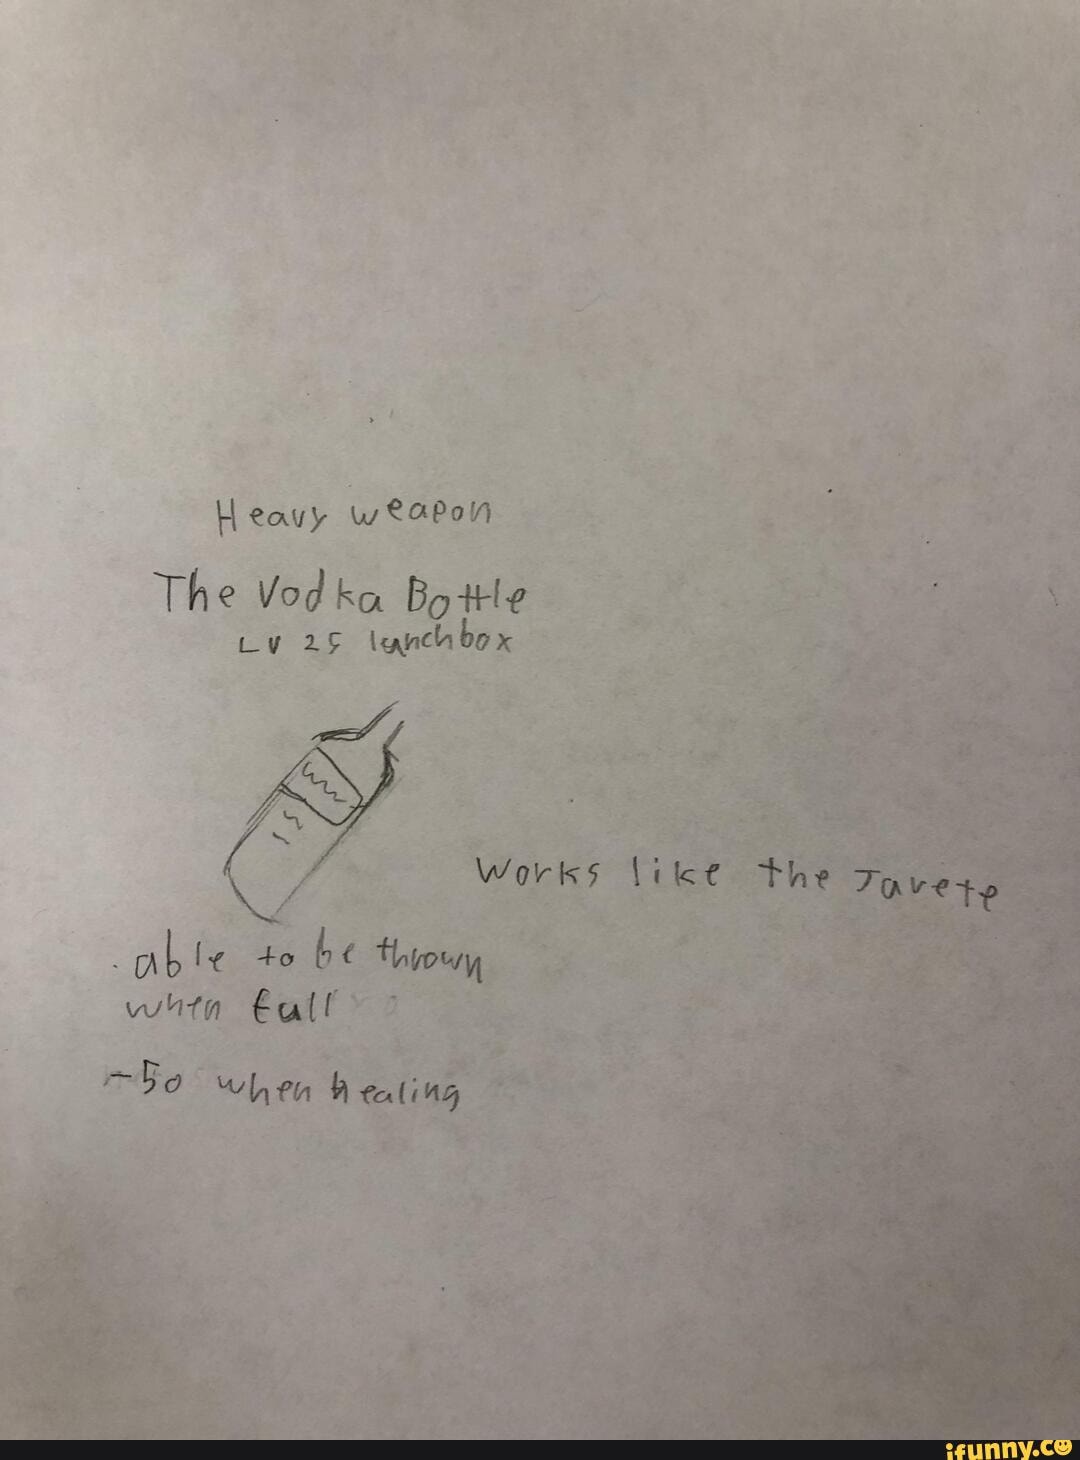 Heavy weapon
The Vodka Bottle
LV 25 lunchbox
Works like the Javete
· able to be thrown
when full
-50 when healing
ifunny.co